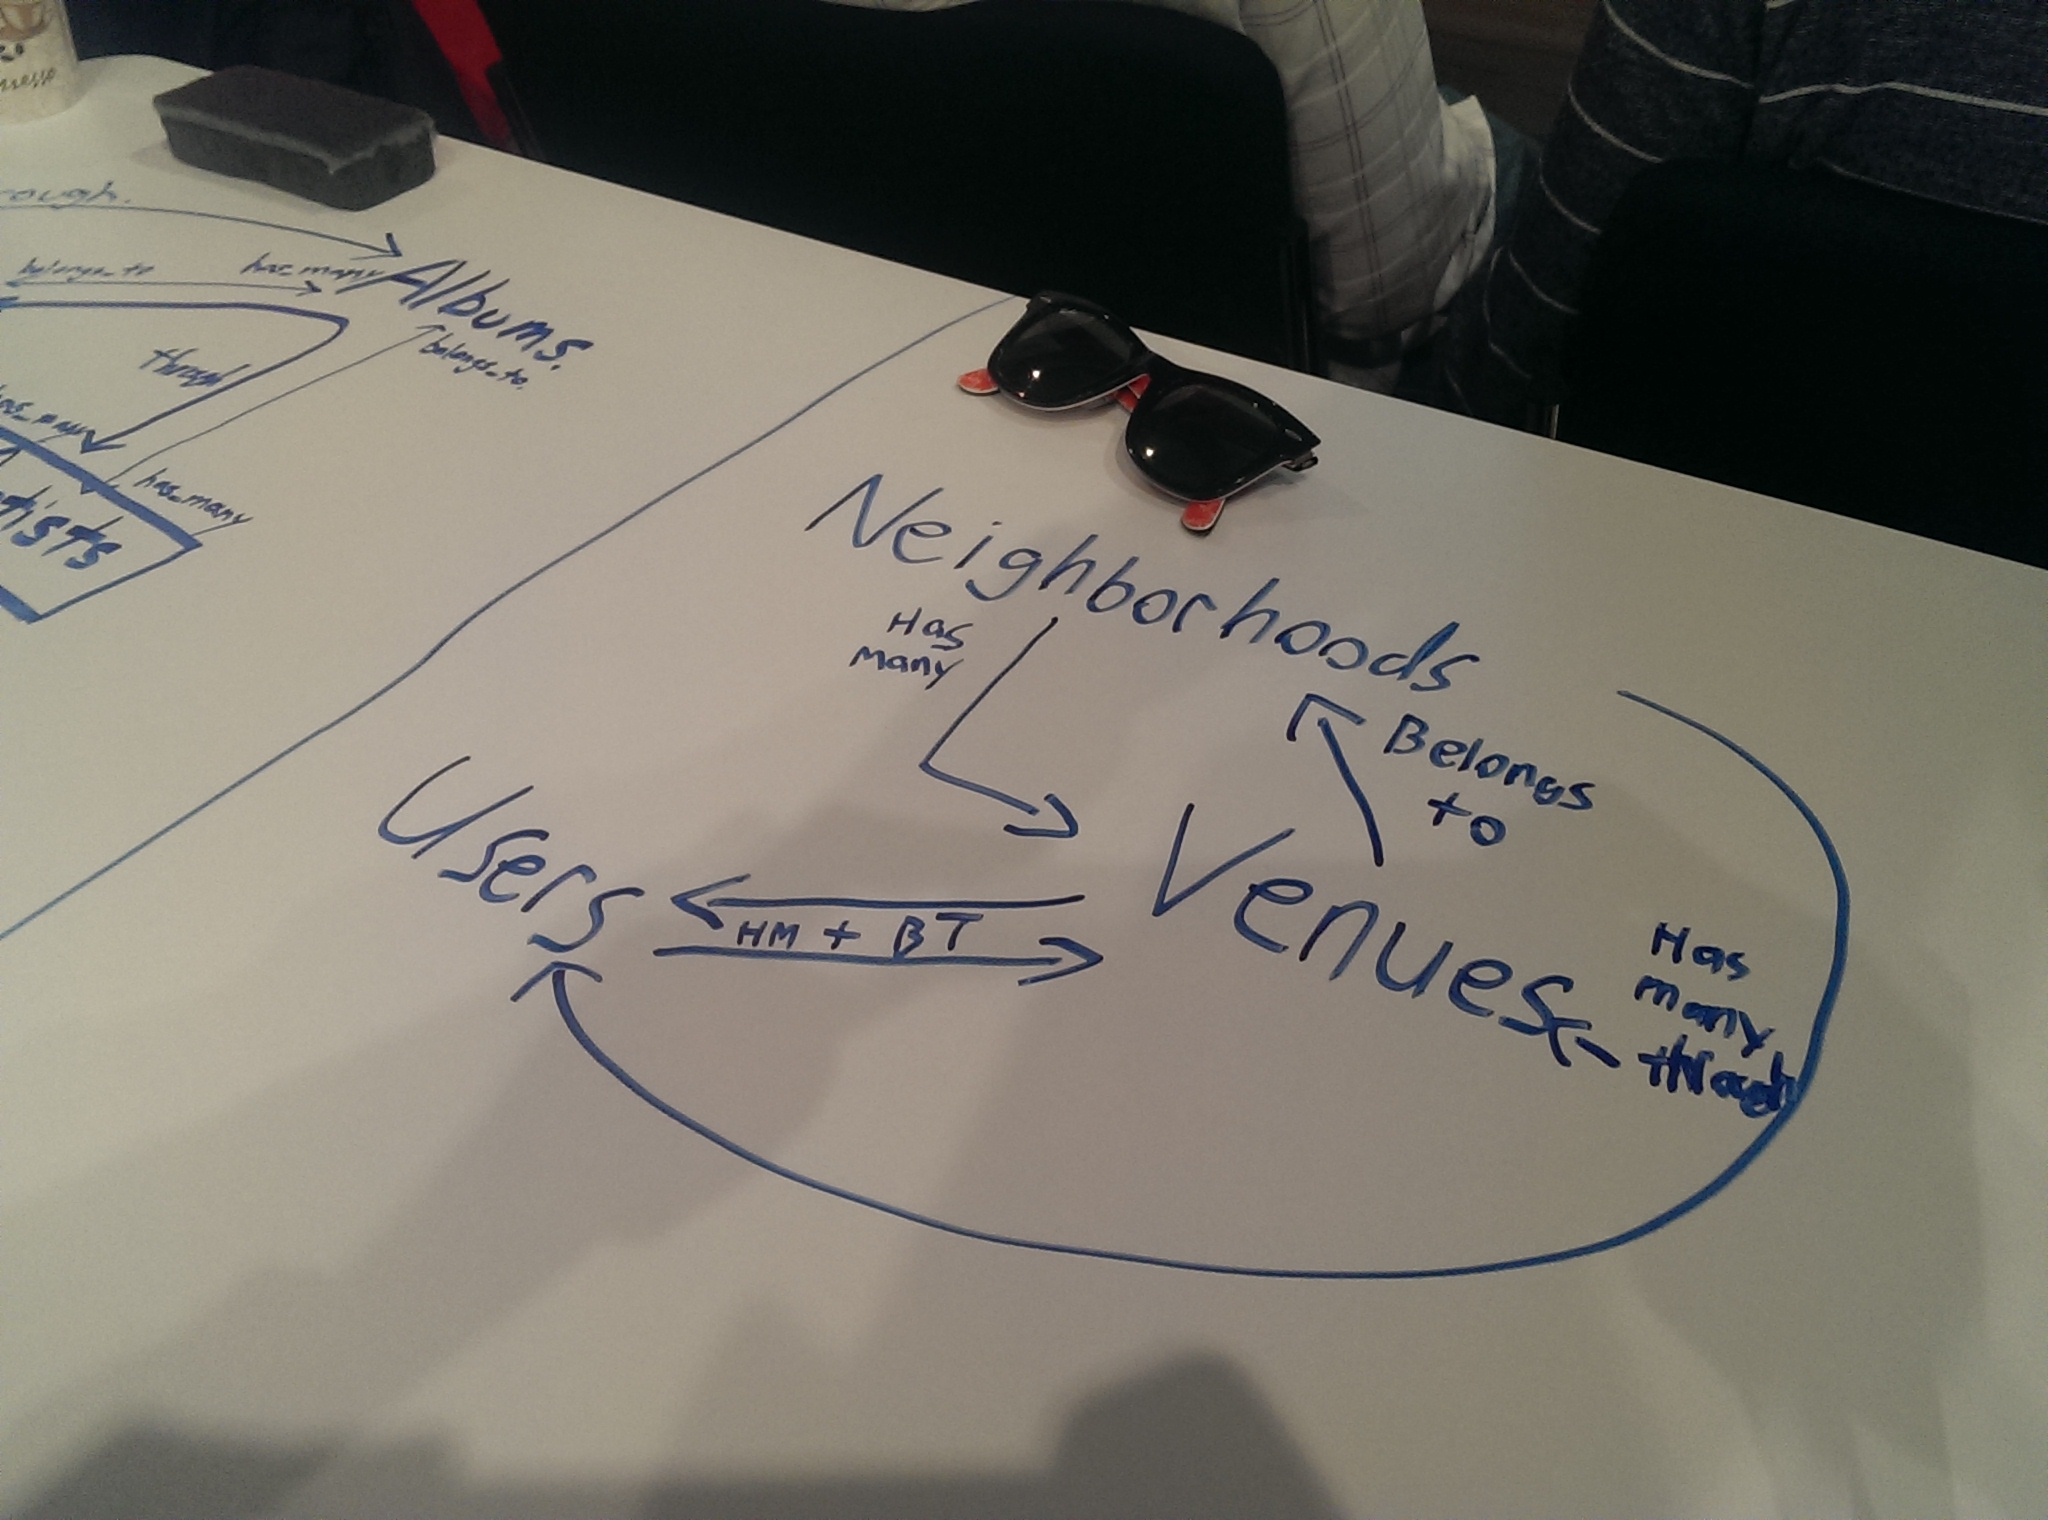 rough.
belongs_to
has_many
Albums.
belongs_to.
through
has_many
has_many
tists
Neighborhoods
Has
many
Belongs
to
Users
HM + BT
Venues
Has
many
through